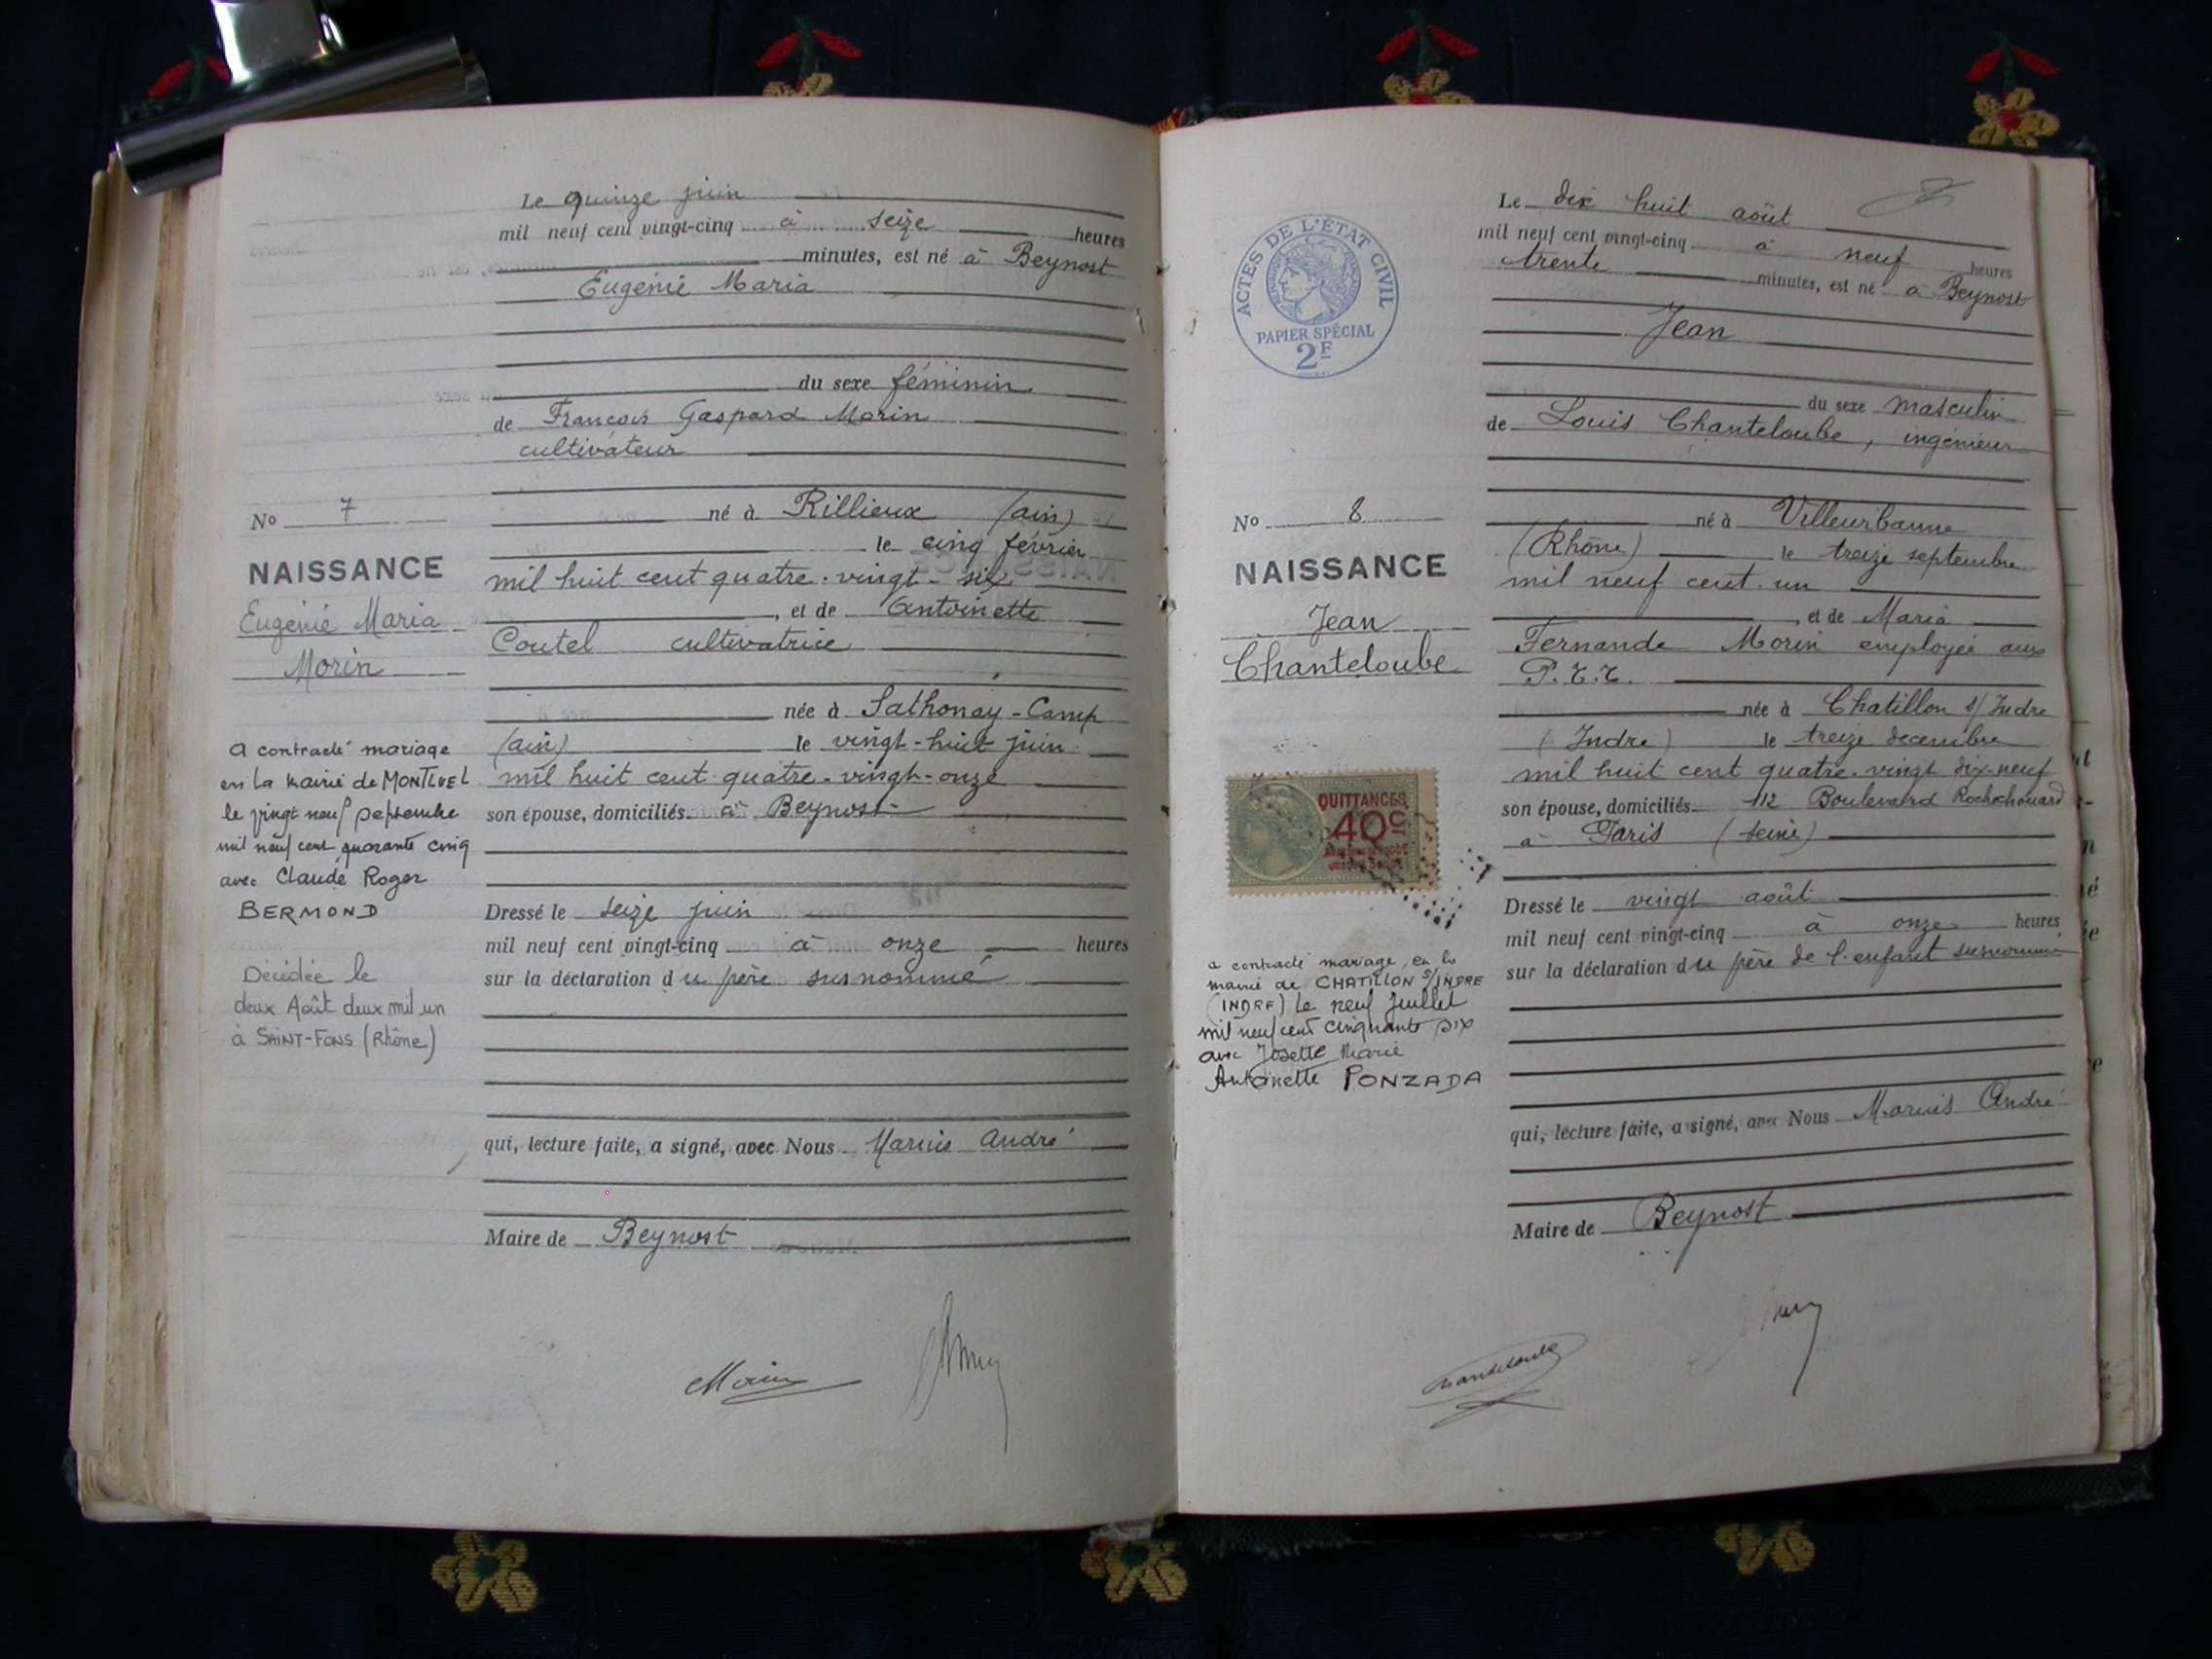 Le quinze juin
mil neuf cent vingt-cinq à seize heures
minutes, est né à Beynost
Eugénie Maria
du sexe féminin
de François Gaspard Morin
cultivateur
né à Rillieux (ain)
le cinq février
mil huit cent quatre-vingt-six
, et de Antoinette
Coutel cultivatrice
née à Sathonay-Camp
(ain) le vingt-huit juin
mil huit cent quatre-vingt-onze
son épouse, domiciliés à Beynost
Dressé le seize juin
mil neuf cent vingt-cinq à onze heures
sur la déclaration du père susnommé
qui, lecture faite, a signé, avec Nous Marius André
Maire de Beynost
Morin
No 7
NAISSANCE
Eugénie Maria
Morin
a contracté mariage
en la mairie de MONTLUEL
le vingt neuf septembre
mil neuf cent quarante cinq
avec Claude Roger
BERMOND
Décédée le
deux Août deux mil un
à SAINT-FONS (Rhône)
ACTES DE L'ÉTAT CIVIL
RÉPUBLIQUE FRANÇAISE
PAPIER SPÉCIAL
2F
No 8
NAISSANCE
Jean
Chanteloube
QUITTANCES
40c
a contracté mariage en la
mairie de CHATILLON S/INDRE
(INDRE) Le neuf juillet
mil neuf cent cinquante six
avec Josette Marie
Antoinette PONZADA
Le dix huit août
mil neuf cent vingt-cinq à neuf heures
trente minutes, est né à Beynost
Jean
du sexe masculin
de Louis Chanteloube, ingénieur
né à Villeurbanne
(Rhône) le treize septembre
mil neuf cent un
, et de Maria
Fernande Morin employée aux
P.T.T.
née à Chatillon s/Indre
(Indre) le treize décembre
mil huit cent quatre-vingt dix-neuf
son épouse, domiciliés 112 Boulevard Rochechouard
à Paris (Seine)
Dressé le vingt août
mil neuf cent vingt-cinq à onze heures
sur la déclaration du père de l'enfant susnommé
qui, lecture faite, a signé, avec Nous Marius André
Maire de Beynost
Chanteloube